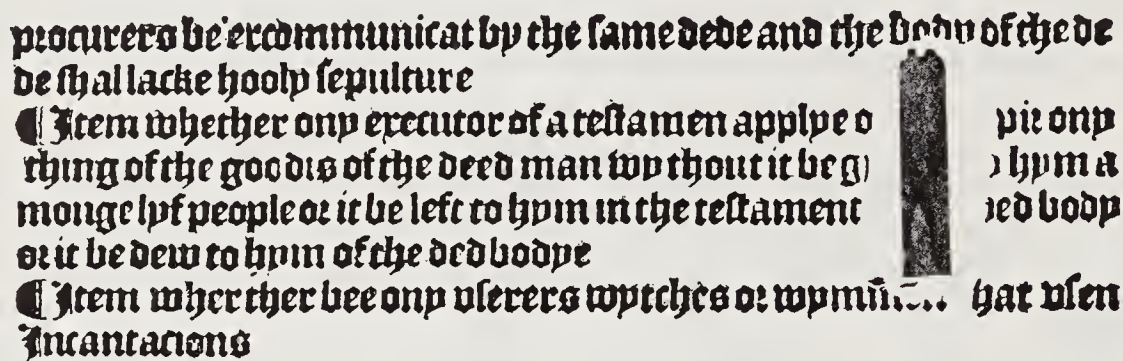 procurers be excommunicat by the same dede and the body of the de
de shal lacke hooly sepulture
¶ Item whether ony executor of a testamen applye ony
thing of the goodis of the deed man wythout it be hym a
monge lyf people or it be left to hym in the testament body
or it be dew to hym of the ded bodye
¶ Item wherther bee ony vserers wytches or vsen
Incantacions